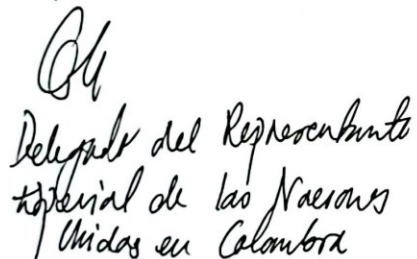 Delegado del Representante
especial de las Naciones
Unidas en Colombia